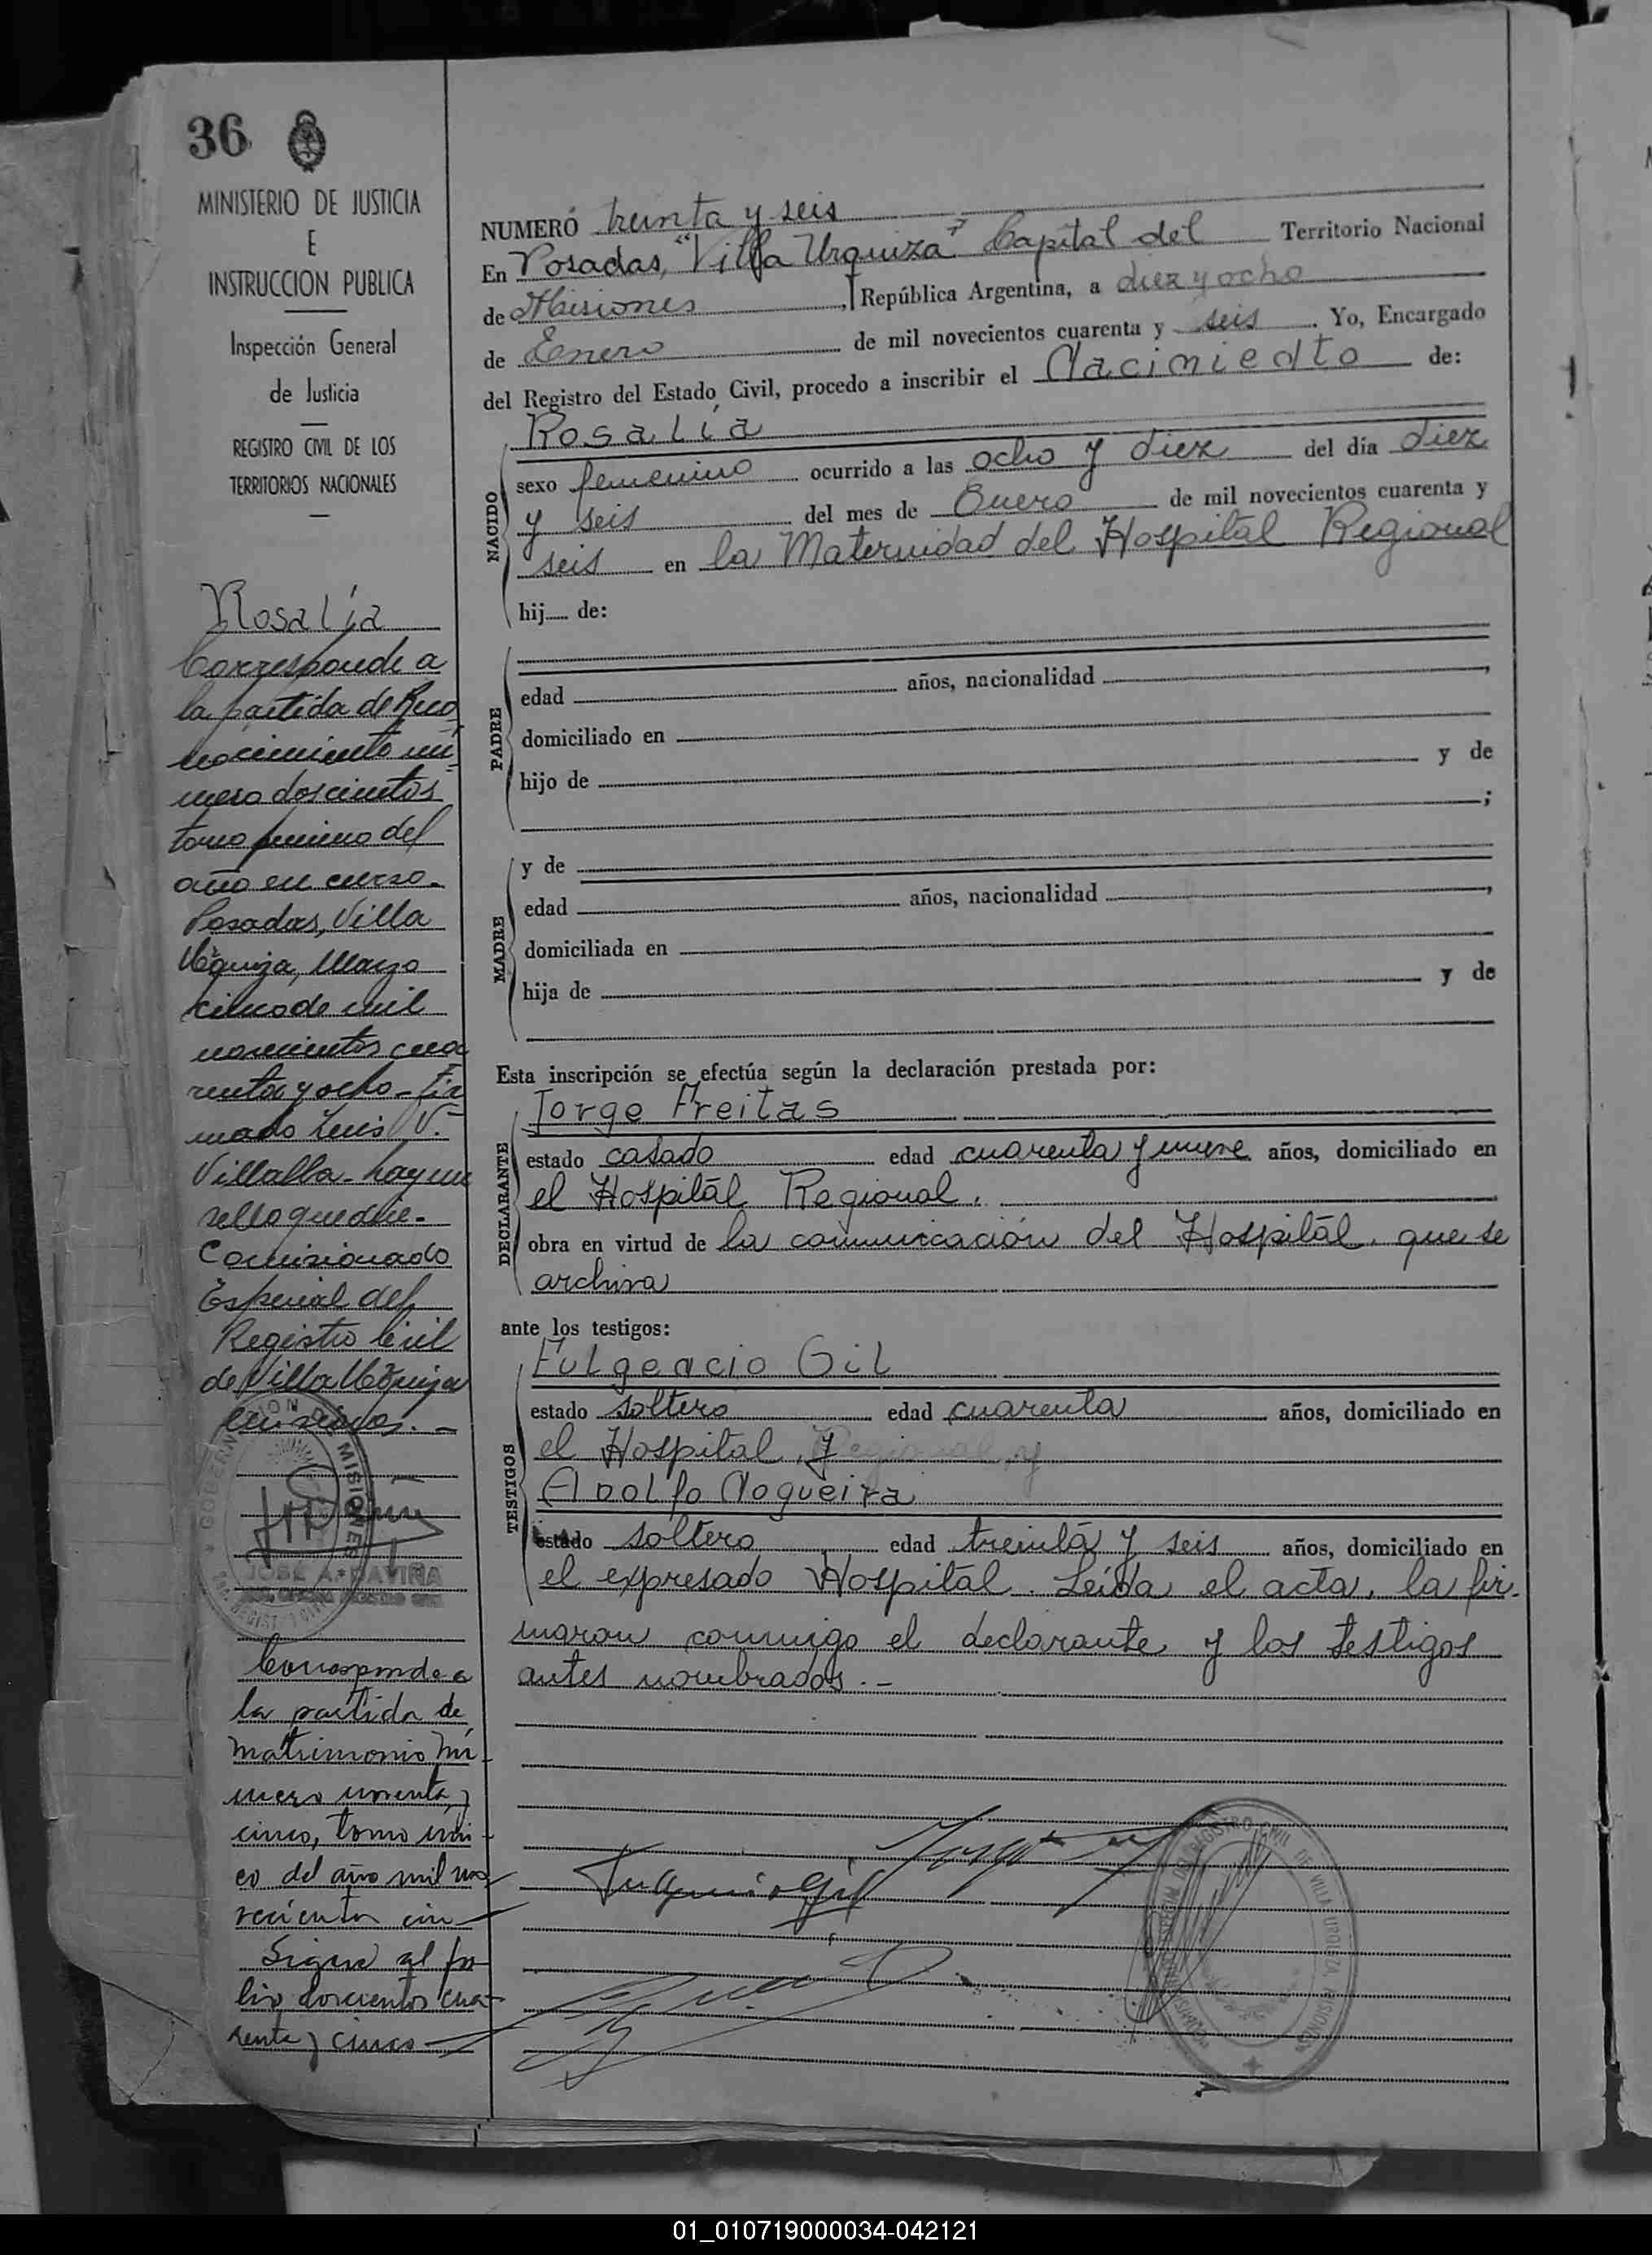 36
MINISTERIO DE JUSTICIA
E
INSTRUCCION PUBLICA
Inspección General
de Justicia
REGISTRO CIVIL DE LOS
TERRITORIOS NACIONALES
Rosalía
Corresponde a
la partida de Reco
nocimiento nú
mero doscientos
tomo primero del
año en curso.
Posadas, Villa
Urquiza, Marzo
cinco de mil
novecientos cua
renta y ocho - Fir
mado Luis V.
Villalba - hay un
sello que dice.
Comisionado
Especial del
Registro Civil
de Villa Urquiza
Misiones. -
GOBERNACION DE MISIONES
JOSE A. DAVIÑA
Corresponde a
la partida de
matrimonio nú
mero noventa y
cinco, tomo úni
co del año mil no
vecientos cin
Sigue al fo
lio doscientos cua
renta y cinco
NUMERÓ treinta y seis
En Posadas, "Villa Urquiza" Capital del Territorio Nacional
de Misiones, República Argentina, a diez y ocho
de Enero de mil novecientos cuarenta y seis. Yo, Encargado
del Registro del Estado Civil, procedo a inscribir el Nacimiento de:
NACIDO
Rosalía
sexo femenino ocurrido a las ocho y diez del día diez
y seis del mes de Enero de mil novecientos cuarenta y
seis en la Maternidad del Hospital Regional
hij de:
PADRE
edad años, nacionalidad ,
domiciliado en
hijo de y de
;
MADRE
y de
edad años, nacionalidad ,
domiciliada en
hija de y de
Esta inscripción se efectúa según la declaración prestada por:
DECLARANTE
Jorge Freitas
estado casado edad cuarenta y nueve años, domiciliado en
el Hospital Regional.
obra en virtud de la comunicación del Hospital que se
archiva
ante los testigos:
TESTIGOS
Fulgencio Gil
estado soltero edad cuarenta años, domiciliado en
el Hospital, y Regional y
Adolfo Nogueira
estado soltero edad treinta y seis años, domiciliado en
el expresado Hospital. Leída el acta, la fir-
maron conmigo el declarante y los testigos
antes nombrados. -
REGISTRO CIVIL DE VILLA URQUIZA, MISIONES
01_010719000034-042121